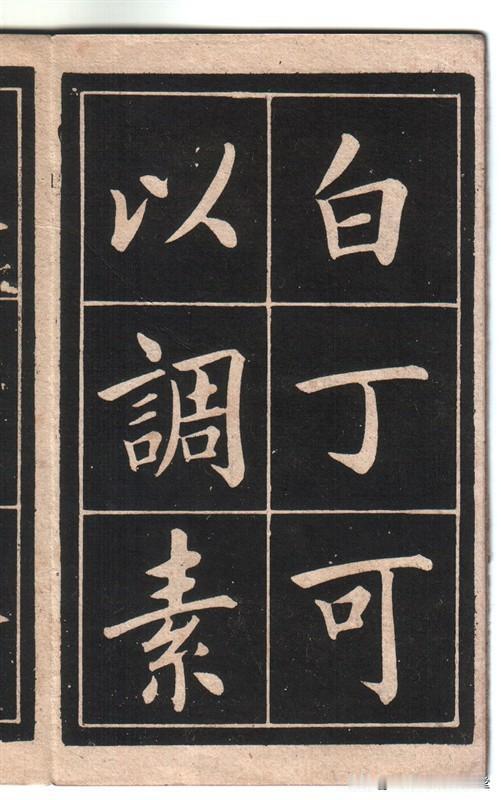 白丁可
以調素